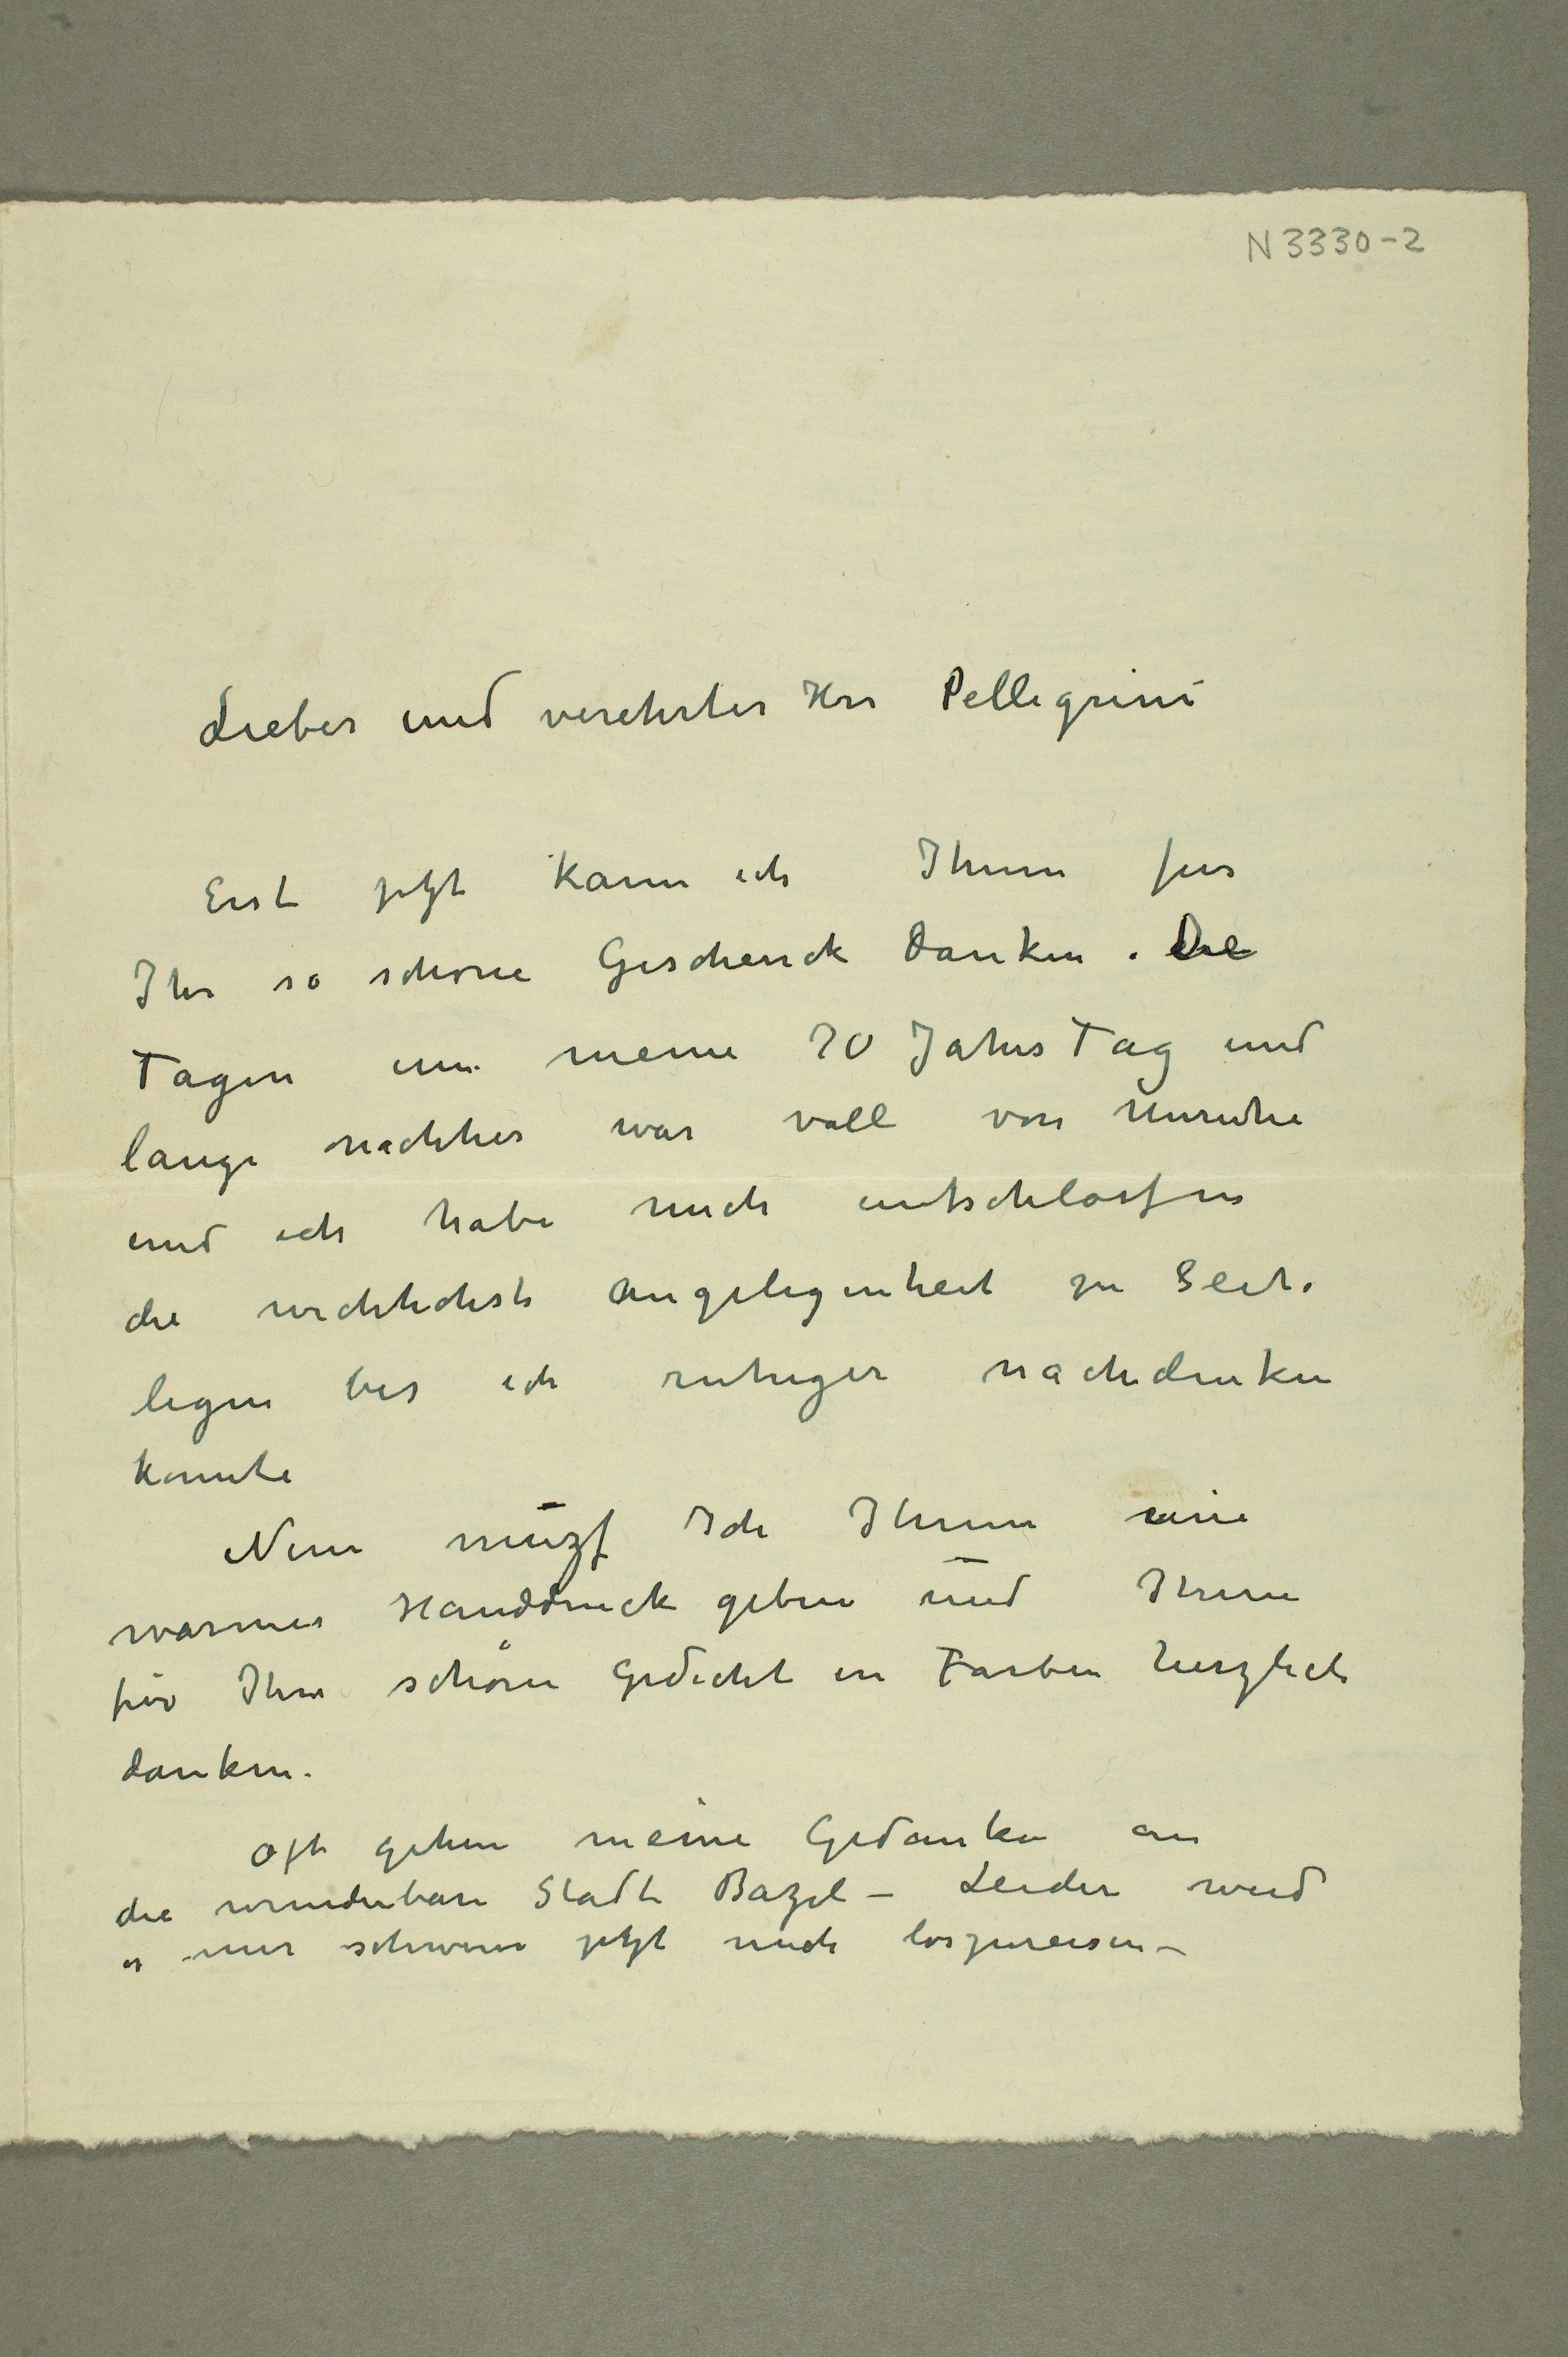 N 3330-2
Lieber und verehrter Herr Pellegrini
Erst jetzt kann ich Ihnen fur
Ihr so schöne Geschenck danken. Die
Tagen um meine 70 Jahrs Tag und
lange nachher war voll von Unruhe
und ich habe mich entschlossen
die wichtichste Angelegenheit zu Seite
legen bis ich ruhiger nachdenken
konnte
Nun muzs Ich Ihnen eine
warmer Handdruck geben und Ihnen
für Ihre schöne Gedicht in Farben herzlich
danken.
Oft gehen meine Gedanken an
die wunderbare Stadt Bazel – Leider wird
es mir schwer jetzt mich loszureisen –